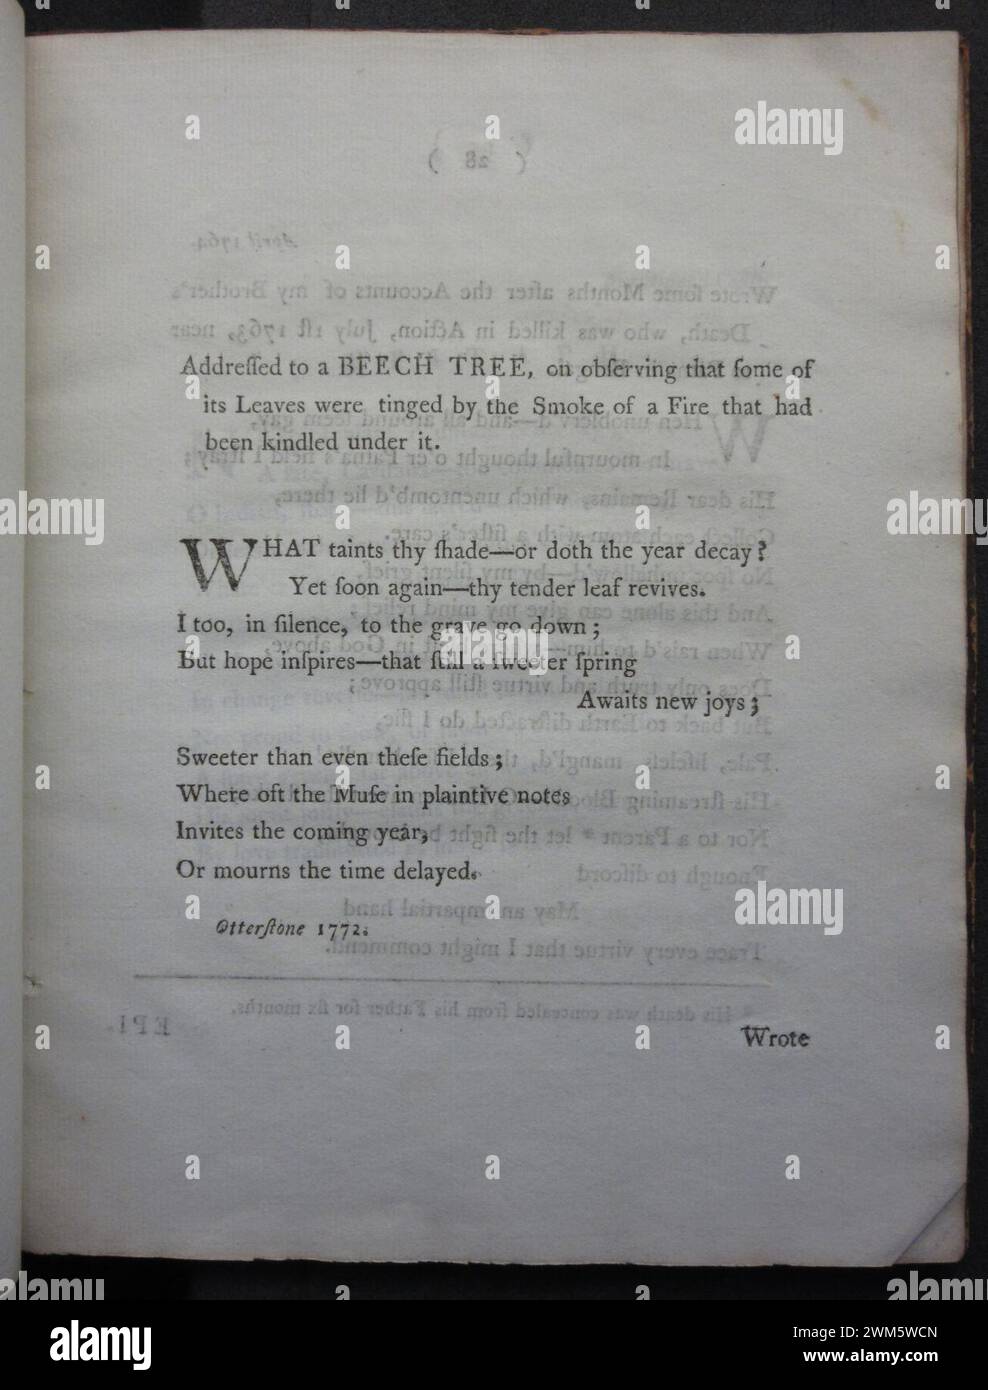 Addreſſed to a BEECH TREE, on obſerving that ſome of
its Leaves were tinged by the Smoke of a Fire that had
been kindled under it.
WHAT taints thy ſhade—or doth the year decay?
Yet ſoon again—thy tender leaf revives.
I too, in ſilence, to the grave go down;
But hope inſpires—that ſtill a ſweeter ſpring
Awaits new joys;
Sweeter than even theſe fields;
Where oft the Muſe in plaintive notes
Invites the coming year,
Or mourns the time delayed.
Otterſtone 1772.
Wrote
alamy
Image ID: 2WM5WCN
www.alamy.com